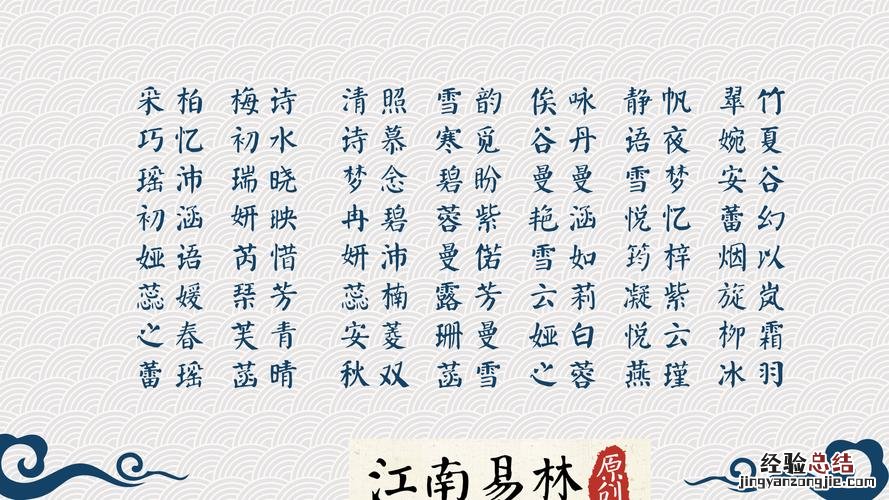 采柏 梅诗 清照 雪韵 俟咏 静帆 翠竹
巧忆 初水 诗慕 寒觅 谷丹 语夜 婉夏
瑶沛 瑞晓 梦念 碧盼 曼曼 雪梦 安谷
初涵 妍映 冉碧 蓉紫 艳涵 悦忆 蕾幻
娅语 芮惜 妍沛 曼偌 雪如 筠梓 烟以
蕊媛 琹芳 蕊楠 露芳 云莉 凝紫 旋岚
之春 芙青 安菱 珊曼 娅白 悦云 柳霜
蕾瑶 菡晴 秋双 菡雪 之蓉 燕瑾 冰羽
江南易林
原创
经验总结
jingyanzongjie.com